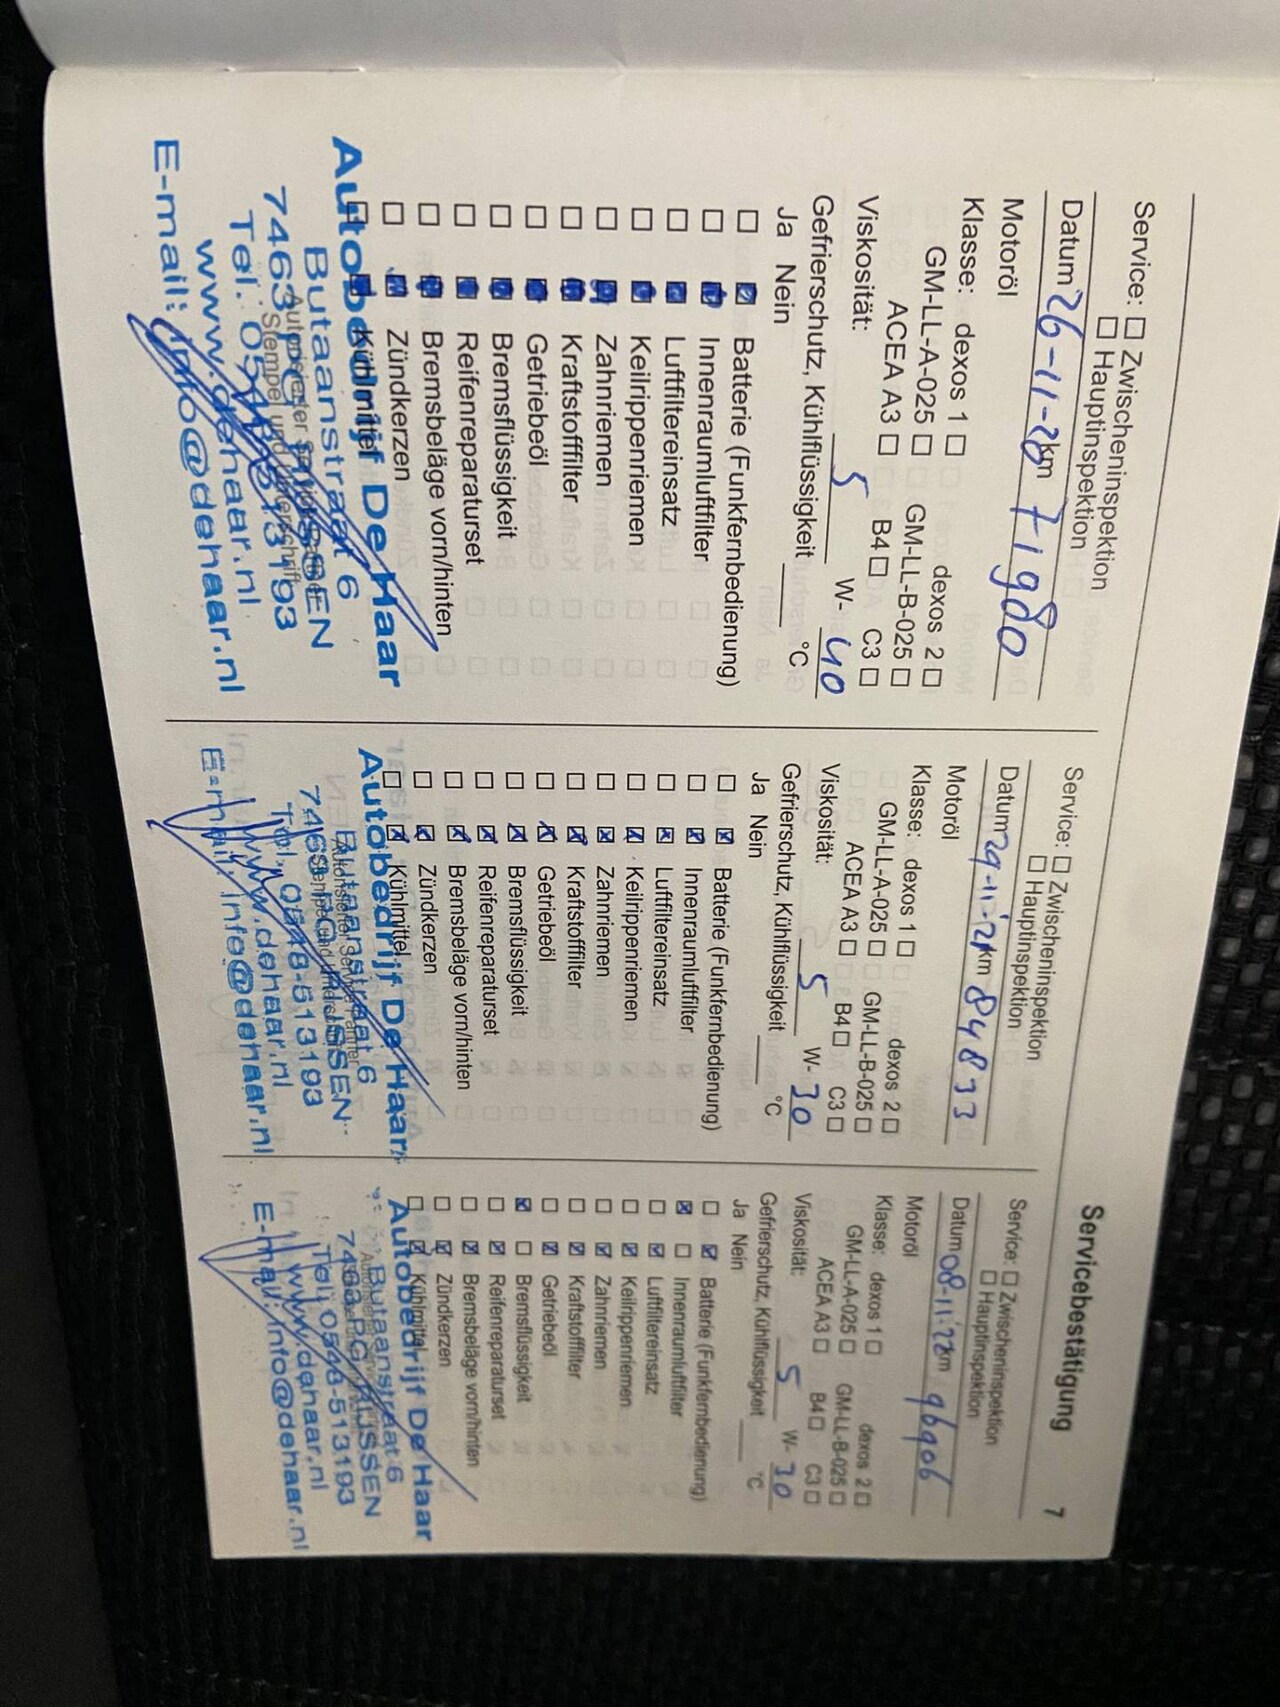 Servicebestätigung 7
Service: ☐ Zwischeninspektion
☐ Hauptinspektion
Datum 26-11-20 km 71980
Motoröl
Klasse: dexos 1 ☐ dexos 2 ☐
GM-LL-A-025 ☐ GM-LL-B-025 ☐
ACEA A3 ☐ B4 ☐ C3 ☐
Viskosität: 5 W- 40
Gefrierschutz, Kühlflüssigkeit ____ °C
Ja Nein
☐ ☒ Batterie (Funkfernbedienung)
☐ ☒ Innenraumluftfilter
☐ ☒ Luftfiltereinsatz
☐ ☒ Keilrippenriemen
☐ ☒ Zahnriemen
☐ ☒ Kraftstofffilter
☐ ☒ Getriebeöl
☐ ☒ Bremsflüssigkeit
☐ ☒ Reifenreparaturset
☐ ☒ Bremsbeläge vorn/hinten
☐ ☒ Zündkerzen
☐ ☒ Kühlmittel
Autobedrijf De Haar
Butaanstraat 6
7463 PG RIJSSEN
Tel. 0548-513193
www.dehaar.nl
E-mail: info@dehaar.nl
Service: ☐ Zwischeninspektion
☐ Hauptinspektion
Datum 29-11-21 km 84833
Motoröl
Klasse: dexos 1 ☐ dexos 2 ☐
GM-LL-A-025 ☐ GM-LL-B-025 ☐
ACEA A3 ☐ B4 ☐ C3 ☐
Viskosität: 5 W- 30
Gefrierschutz, Kühlflüssigkeit ____ °C
Ja Nein
☐ ☒ Batterie (Funkfernbedienung)
☐ ☒ Innenraumluftfilter
☐ ☒ Luftfiltereinsatz
☐ ☒ Keilrippenriemen
☐ ☒ Zahnriemen
☐ ☒ Kraftstofffilter
☐ ☒ Getriebeöl
☐ ☒ Bremsflüssigkeit
☐ ☒ Reifenreparaturset
☐ ☒ Bremsbeläge vorn/hinten
☐ ☒ Zündkerzen
☐ ☒ Kühlmittel
Autobedrijf De Haar
Butaanstraat 6
7463 PG RIJSSEN
Tel. 0548-513193
www.dehaar.nl
E-mail: info@dehaar.nl
Service: ☐ Zwischeninspektion
☐ Hauptinspektion
Datum 08-11-22 km 96906
Motoröl
Klasse: dexos 1 ☐ dexos 2 ☐
GM-LL-A-025 ☐ GM-LL-B-025 ☐
ACEA A3 ☐ B4 ☐ C3 ☐
Viskosität: 5 W- 30
Gefrierschutz, Kühlflüssigkeit ____ °C
Ja Nein
☐ ☒ Batterie (Funkfernbedienung)
☒ ☐ Innenraumluftfilter
☐ ☒ Luftfiltereinsatz
☐ ☒ Keilrippenriemen
☐ ☒ Zahnriemen
☐ ☒ Kraftstofffilter
☐ ☒ Getriebeöl
☒ ☐ Bremsflüssigkeit
☐ ☒ Reifenreparaturset
☐ ☒ Bremsbeläge vorn/hinten
☐ ☒ Zündkerzen
☐ ☒ Kühlmittel
Autobedrijf De Haar
Butaanstraat 6
7463 PG RIJSSEN
Tel. 0548-513193
www.dehaar.nl
E-mail: info@dehaar.nl